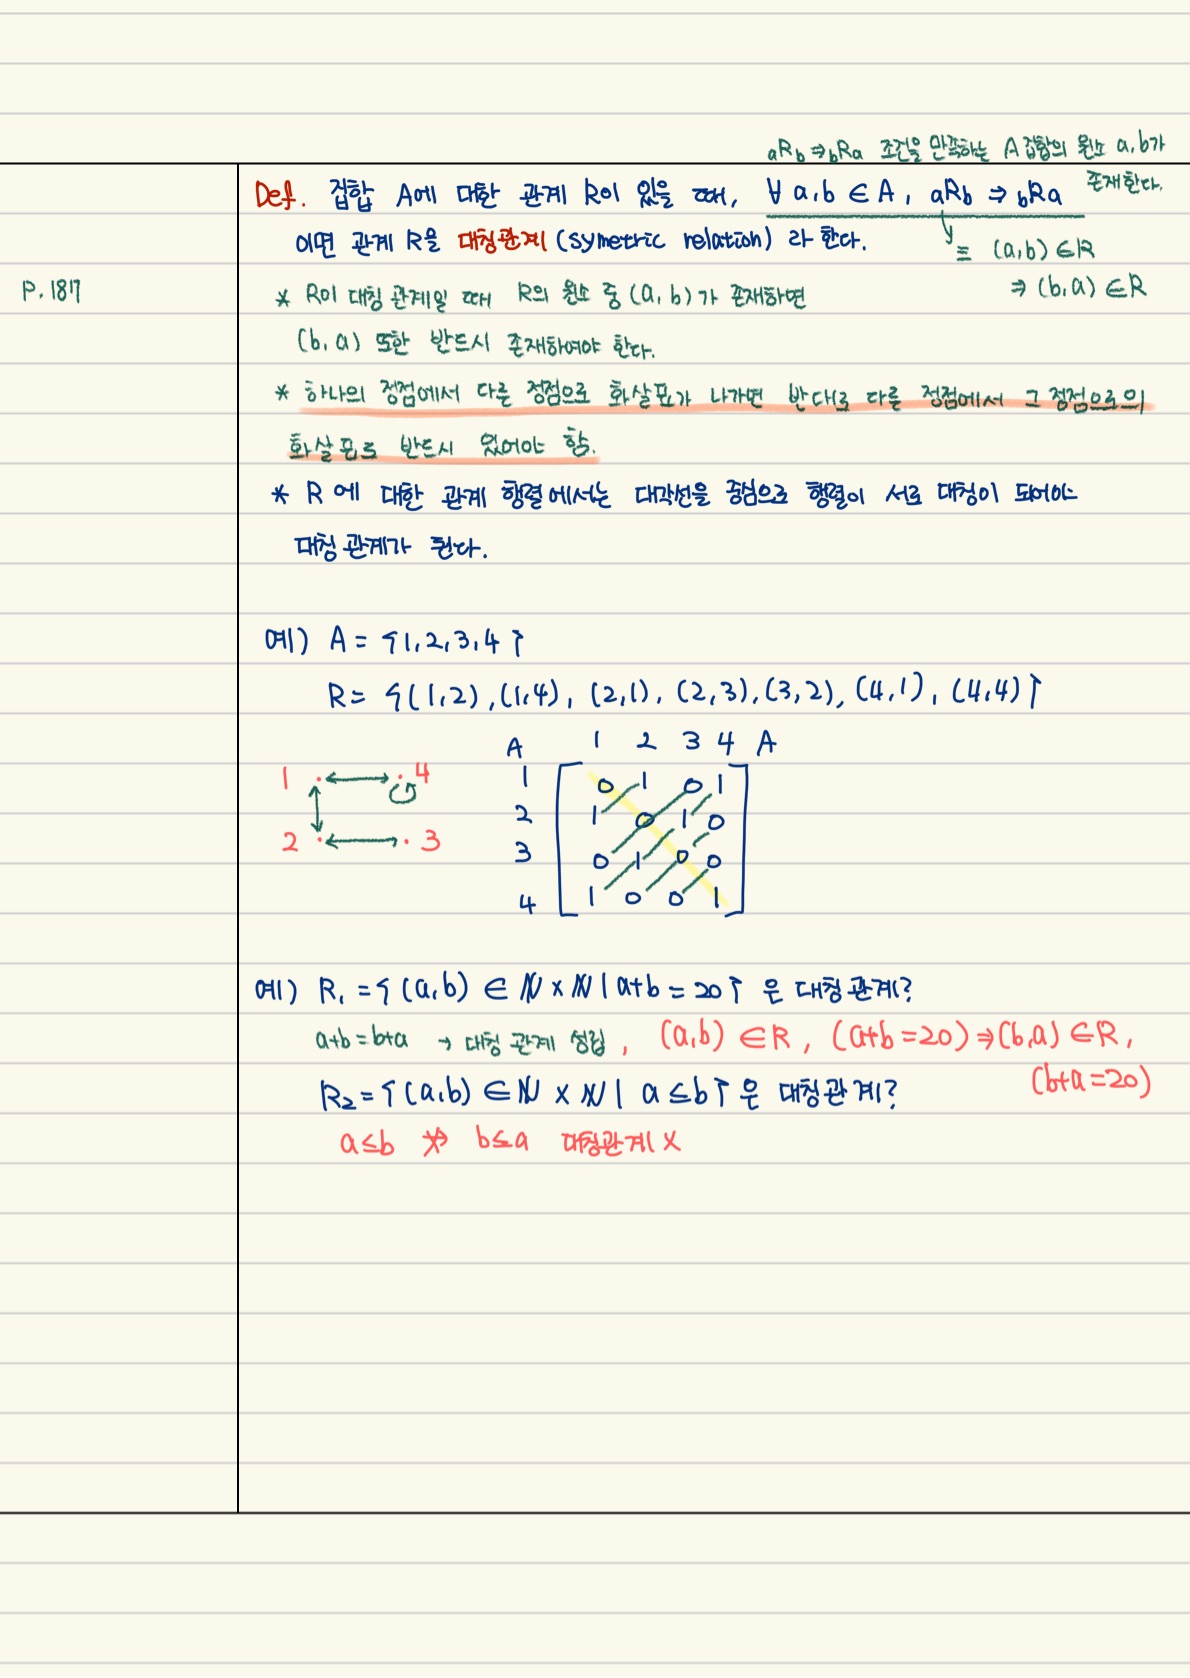 aRb ⇒ bRa 조건을 만족하는 A 집합의 원소 a, b가
존재한다.
Def. 집합 A에 대한 관계 R이 있을 때, ∀ a, b ∈ A, aRb ⇒ bRa
이면 관계 R을 대칭관계 (symetric relation) 라 한다.
≡ (a, b) ∈ R
⇒ (b, a) ∈ R
P. 187
* R이 대칭 관계일 때 R의 원소 중 (a, b)가 존재하면
(b, a) 또한 반드시 존재하여야 한다.
* 하나의 정점에서 다른 정점으로 화살표가 나가면 반대로 다른 정점에서 그 정점으로의
화살표도 반드시 있어야 함.
* R에 대한 관계 행렬에서는 대각선을 중심으로 행렬이 서로 대칭이 되어야
대칭 관계가 된다.
예) A = {1, 2, 3, 4}
R = {(1,2), (1,4), (2,1), (2,3), (3,2), (4,1), (4,4)}
1 4
2 3
A 1 2 3 4 A
1 0 1 0 1
2 1 0 1 0
3 0 1 0 0
4 1 0 0 1
예) R₁ = {(a,b) ∈ ℕ × ℕ | a+b = 20} 은 대칭 관계?
a+b = b+a → 대칭 관계 성립, (a,b) ∈ R, (a+b = 20) ⇒ (b,a) ∈ R,
(b+a = 20)
R₂ = {(a,b) ∈ ℕ × ℕ | a ≤ b} 은 대칭관계?
a ≤ b ⇏ b ≤ a 대칭관계 X